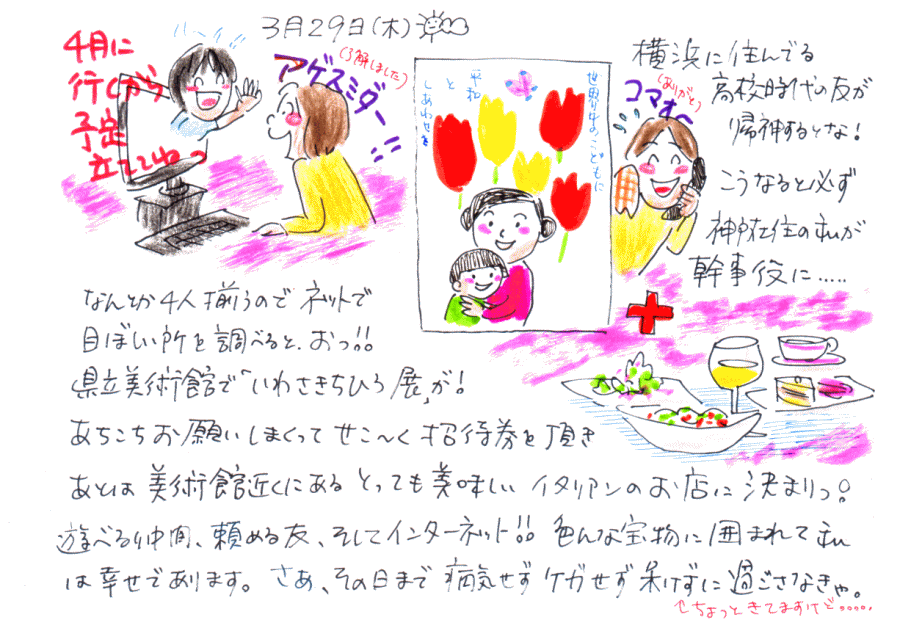 3月29日(木)
ハーイ!!
4月に
行くから
予定
立ててねっ
アゲスミダー
(了解しました)
世界中のこどもに
平和
と
しあわせを
コマオ〜
(ありがと)
横浜に住んでる
高校時代の友が
帰神するとな!
こうなると必ず
神戸在住の私が
幹事役に……
なんとか4人揃うので ネットで
目ぼしい所を調べると、おっ!!
県立美術館で「いわさきちひろ展」が!
あちこちお願いしまくって せこ〜く 招待券を頂き
あとは 美術館近くにある とっても美味しい イタリアンのお店に 決まりっ!
遊べる仲間、頼める友、そしてインターネット!! 色んな宝物に囲まれて 私
は幸せであります。 さあ、その日まで 病気せず ケガせず 呆けずに 過ごさなきゃ。
↑ちょっときてますけど……